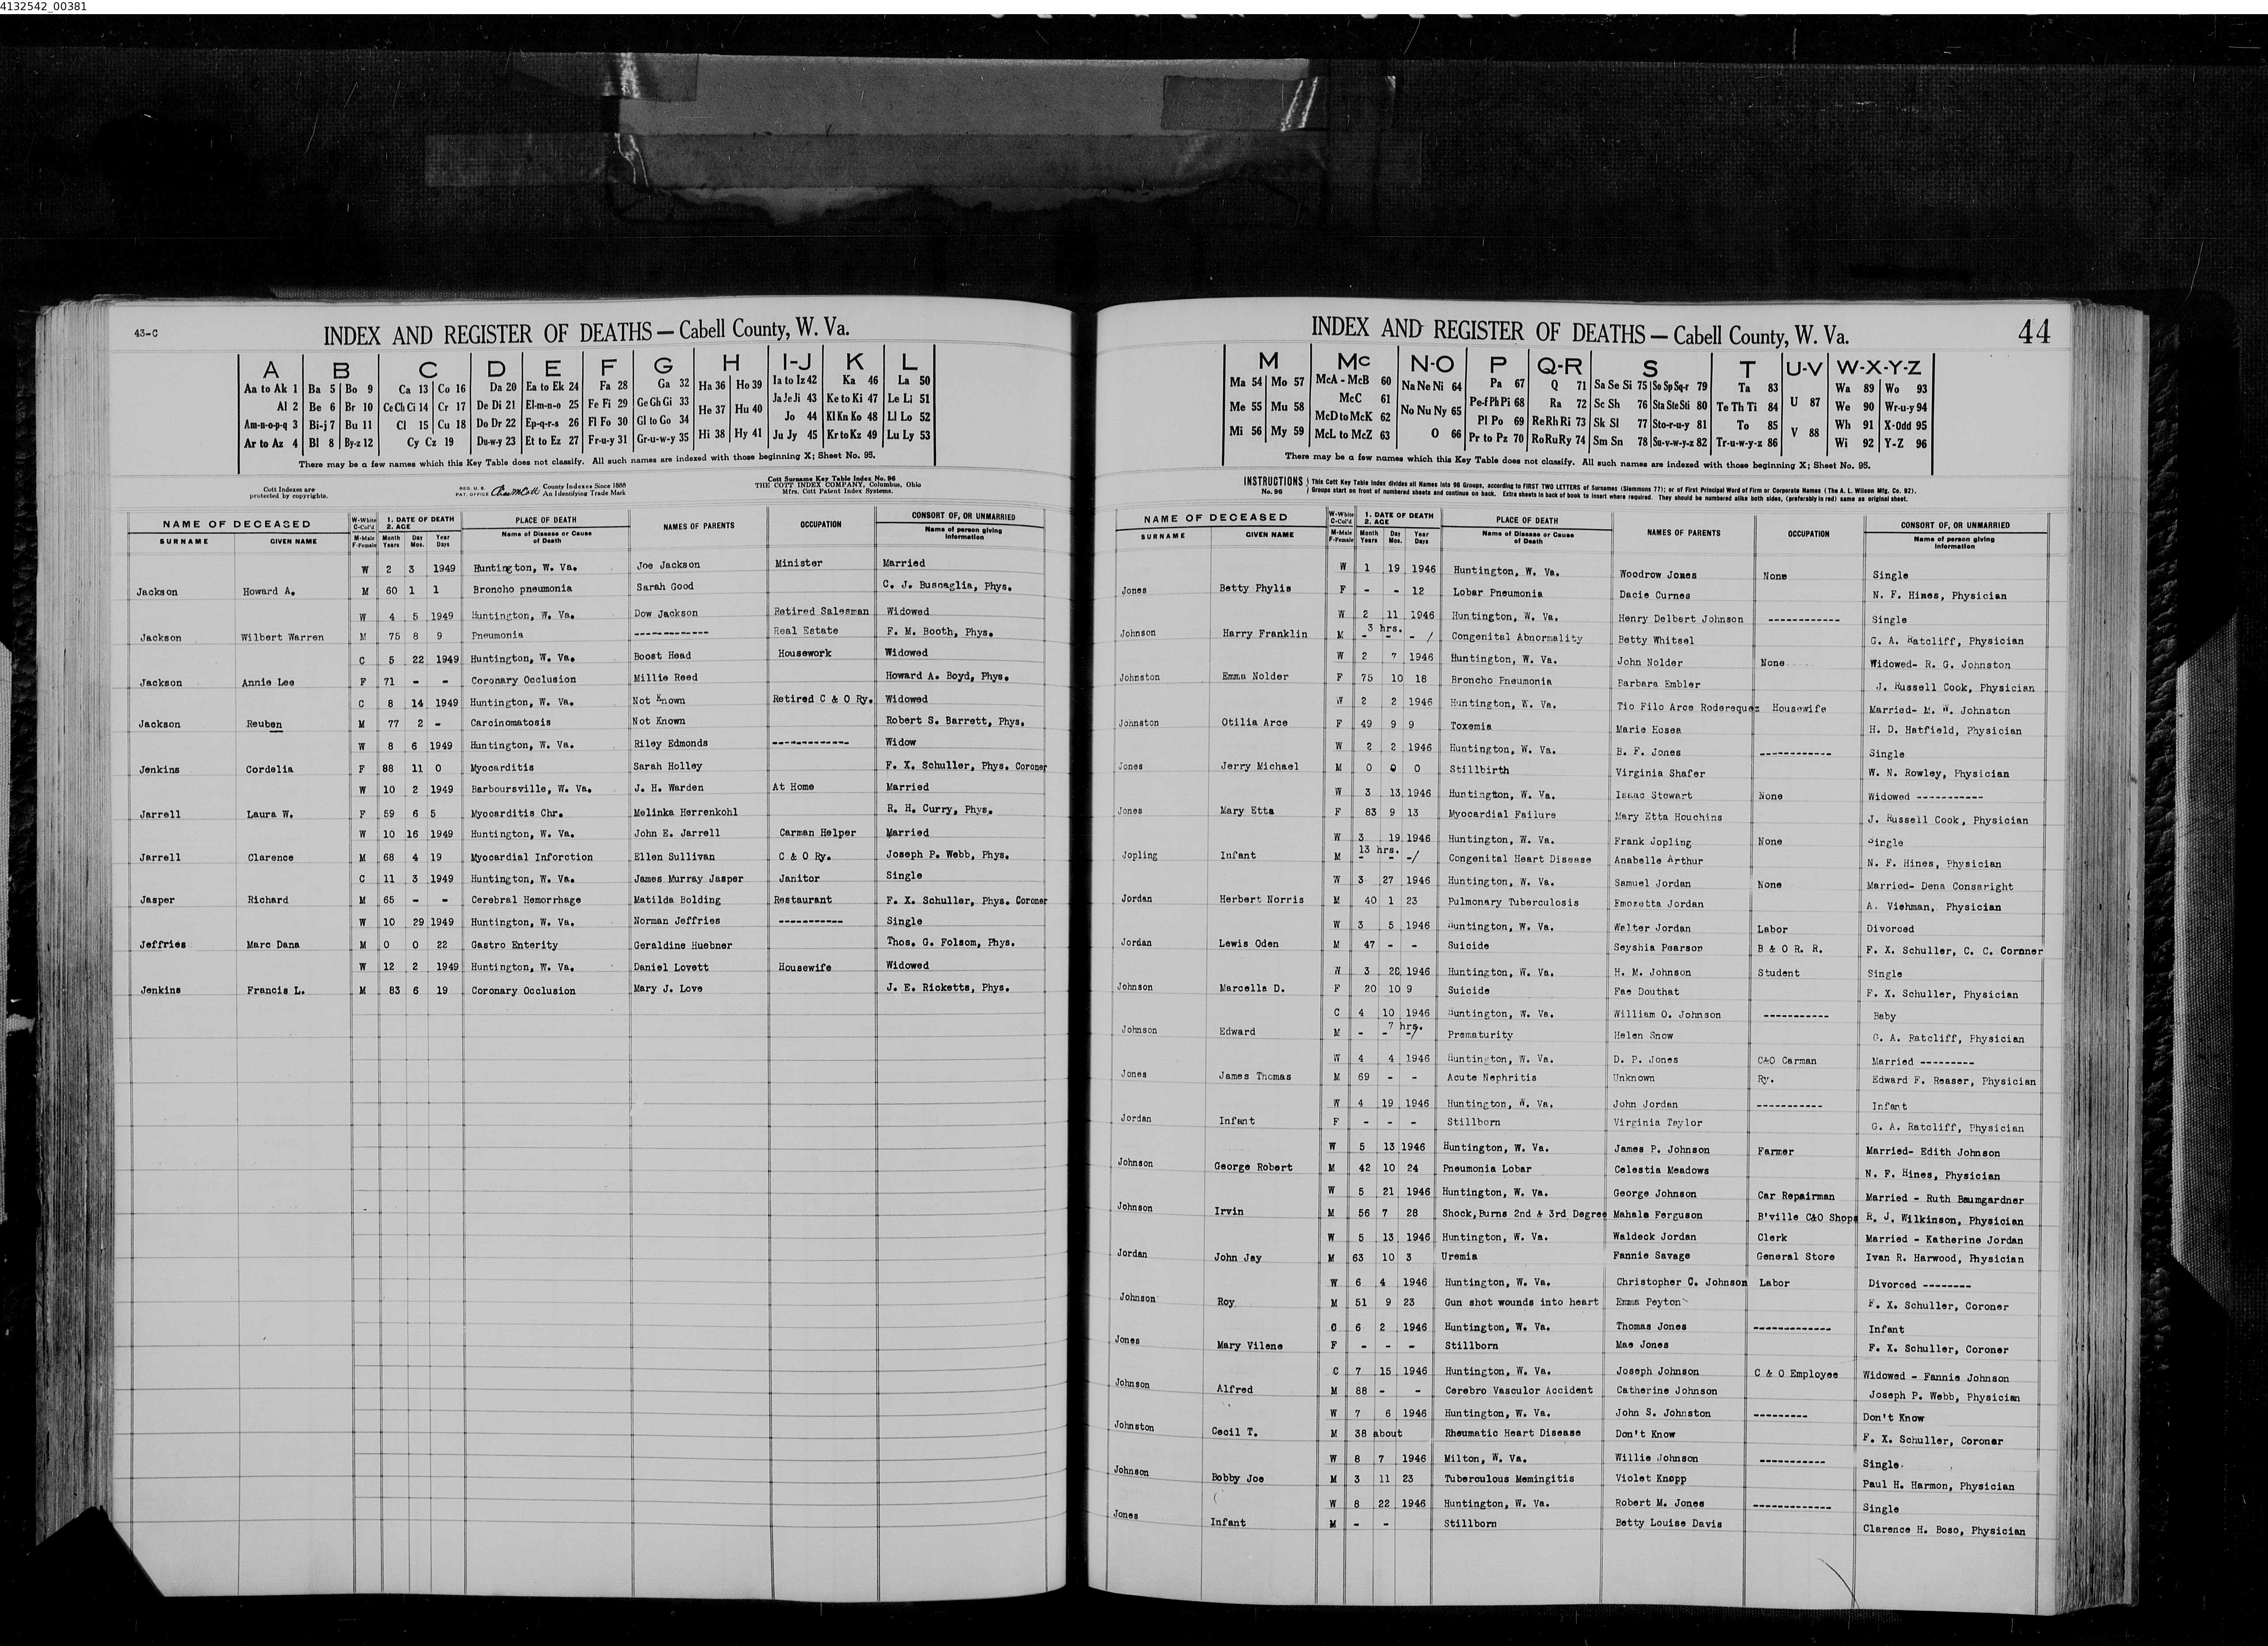 4132542_00381
43-C
INDEX AND REGISTER OF DEATHS — Cabell County, W. Va.
A B C D E F G H I-J K L
Aa to Ak 1 Ba 5 Bo 9 Ca 13 Co 16 Da 20 Ea to Ek 24 Fa 28 Ga 32 Ha 36 Ho 39 Ia to Iz 42 Ka 46 La 50
Al 2 Be 6 Br 10 Ce Ch Ci 14 Cr 17 De Di 21 El-m-n-o 25 Fe Fi 29 Ge Gh Gi 33 He 37 Hu 40 Ja Je Ji 43 Ke to Ki 47 Le Li 51
Am-n-o-p-q 3 Bi-j 7 Bu 11 Cl 15 Cu 18 Do Dr 22 Ep-q-r-s 26 Fl Fo 30 Gl to Go 34 Hi 38 Hy 41 Jo 44 Kl Kn Ko 48 Ll Lo 52
Ar to Az 4 Bl 8 By-z 12 Cy Cz 19 Du-w-y 23 Et to Ez 27 Fr-u-y 31 Gr-u-w-y 35 Ju Jy 45 Kr to Kz 49 Lu Ly 53
There may be a few names which this Key Table does not classify. All such names are indexed with those beginning X; Sheet No. 95.
Cott Indexes are protected by copyrights.
REG. U. S. PAT. OFFICE County Indexes Since 1888 An Identifying Trade Mark
Cott Surname Key Table Index No. 96
THE COTT INDEX COMPANY, Columbus, Ohio
Mfrs. Cott Patent Index Systems.
NAME OF DECEASED W-White C-Col'd 1. DATE OF DEATH 2. AGE PLACE OF DEATH NAMES OF PARENTS OCCUPATION CONSORT OF, OR UNMARRIED
SURNAME GIVEN NAME M-Male F-Female Month Years Day Mos. Year Days Name of Disease or Cause of Death Name of person giving Information
W 2 3 1949 Huntington, W. Va. Joe Jackson Minister Married
Jackson Howard A. M 60 1 1 Broncho pneumonia Sarah Good C. J. Buscaglia, Phys.
W 4 5 1949 Huntington, W. Va. Dow Jackson Retired Salesman Widowed
Jackson Wilbert Warren M 75 8 9 Pneumonia ------------- Real Estate F. M. Booth, Phys.
C 5 22 1949 Huntington, W. Va. Boost Head Housework Widowed
Jackson Annie Lee F 71 - - Coronary Occlusion Millie Reed Howard A. Boyd, Phys.
C 8 14 1949 Huntington, W. Va. Not Known Retired C & O Ry. Widowed
Jackson Reuben M 77 2 - Carcinomatosis Not Known Robert S. Barrett, Phys.
W 8 6 1949 Huntington, W. Va. Riley Edmonds ------------- Widow
Jenkins Cordelia F 88 11 0 Myocarditis Sarah Holley F. X. Schuller, Phys. Coroner
W 10 2 1949 Barboursville, W. Va. J. H. Warden At Home Married
Jarrell Laura W. F 59 6 5 Myocarditis Chr. Melinka Herrenkohl R. H. Curry, Phys.
W 10 16 1949 Huntington, W. Va. John E. Jarrell Carman Helper Married
Jarrell Clarence M 68 4 19 Myocardial Inforction Ellen Sullivan C & O Ry. Joseph P. Webb, Phys.
C 11 3 1949 Huntington, W. Va. James Murray Jasper Janitor Single
Jasper Richard M 65 - - Cerebral Hemorrhage Matilda Bolding Restaurant F. X. Schuller, Phys. Coroner
W 10 29 1949 Huntington, W. Va. Norman Jeffries ----------- Single
Jeffries Marc Dana M 0 0 22 Gastro Enterity Geraldine Huebner Thos. G. Folsom, Phys.
W 12 2 1949 Huntington, W. Va. Daniel Lovett Housewife Widowed
Jenkins Francis L. M 83 6 19 Coronary Occlusion Mary J. Love J. E. Ricketts, Phys.
INDEX AND REGISTER OF DEATHS — Cabell County, W. Va.
44
M Mc N-O P Q-R S T U-V W-X-Y-Z
Ma 54 Mo 57 McA - McB 60 Na Ne Ni 64 Pa 67 Q 71 Sa Se Si 75 So Sp Sq-r 79 Ta 83 U 87 Wa 89 Wo 93
Me 55 Mu 58 McC 61 No Nu Ny 65 Pe-f Ph Pi 68 Ra 72 Sc Sh 76 Sta Ste Sti 80 Te Th Ti 84 V 88 We 90 Wr-u-y 94
Mi 56 My 59 McD to McK 62 O 66 Pl Po 69 Re Rh Ri 73 Sk Sl 77 Sto-r-u-y 81 To 85 Wh 91 X-Odd 95
McL to McZ 63 Pr to Pz 70 Ro Ru Ry 74 Sm Sn 78 Su-v-w-y-z 82 Tr-u-w-y-z 86 Wi 92 Y-Z 96
There may be a few names which this Key Table does not classify. All such names are indexed with those beginning X; Sheet No. 95.
INSTRUCTIONS No. 96 This Cott Key Table Index divides all Names into 96 Groups, according to FIRST TWO LETTERS of Surnames (Slemmons 77); or of First Principal Word of Firm or Corporate Names (The A. L. Wilson Mfg. Co. 92).
Groups start on front of numbered sheets and continue on back. Extra sheets in back of book to insert where required. They should be numbered alike both sides, (preferably in red) same as original sheet.
NAME OF DECEASED W-White C-Col'd 1. DATE OF DEATH 2. AGE PLACE OF DEATH NAMES OF PARENTS OCCUPATION CONSORT OF, OR UNMARRIED
SURNAME GIVEN NAME M-Male F-Female Month Years Day Mos. Year Days Name of Disease or Cause of Death Name of person giving Information
W 1 19 1946 Huntington, W. Va. Woodrow Jones None Single
Jones Betty Phylis F - - 12 Lobar Pneumonia Dacie Curnes N. F. Hines, Physician
W 2 11 1946 Huntington, W. Va. Henry Delbert Johnson ------------ Single
Johnson Harry Franklin M 3 hrs. - - -/ Congenital Abnormality Betty Whitsel G. A. Ratcliff, Physician
W 2 7 1946 Huntington, W. Va. John Nolder None Widowed- R. G. Johnston
Johnston Emma Nolder F 75 10 18 Broncho Pneumonia Barbara Embler J. Russell Cook, Physician
W 2 2 1946 Huntington, W. Va. Tio Filo Arce Roderequez Housewife Married- M. W. Johnston
Johnston Otilia Arce F 49 9 9 Toxemia Marie Hosea H. D. Hatfield, Physician
W 2 2 1946 Huntington, W. Va. B. F. Jones ------------ Single
Jones Jerry Michael M 0 0 0 Stillbirth Virginia Shafer W. N. Rowley, Physician
W 3 13 1946 Huntington, W. Va. Isaac Stewart None Widowed -----------
Jones Mary Etta F 83 9 13 Myocardial Failure Mary Etta Houchins J. Russell Cook, Physician
W 3 19 1946 Huntington, W. Va. Frank Jopling None Single
Jopling Infant M 13 hrs. - - -/ Congenital Heart Disease Anabelle Arthur N. F. Hines, Physician
W 3 27 1946 Huntington, W. Va. Samuel Jordan None Married- Dena Consaright
Jordan Herbert Norris M 40 1 23 Pulmonary Tuberculosis Emozetta Jordan A. Viehman, Physician
W 3 5 1946 Huntington, W. Va. Walter Jordan Labor Divorced
Jordan Lewis Oden M 47 - - Suicide Seyshia Pearson B & O R. R. F. X. Schuller, C. C. Cornner
W 3 20 1946 Huntington, W. Va. H. M. Johnson Student Single
Johnson Marcella D. F 20 10 9 Suicide Fae Douthat F. X. Schuller, Physician
C 4 10 1946 Huntington, W. Va. William O. Johnson ----------- Baby
Johnson Edward M - - 7 hrs. -/ Prematurity Helen Snow G. A. Ratcliff, Physician
W 4 4 1946 Huntington, W. Va. D. P. Jones C&O Carman Married ---------
Jones James Thomas M 69 - - Acute Nephritis Unknown Ry. Edward F. Reaser, Physician
W 4 19 1946 Huntington, W. Va. John Jordan ----------- Infant
Jordan Infant F - - - Stillborn Virginia Taylor G. A. Ratcliff, Physician
W 5 13 1946 Huntington, W. Va. James P. Johnson Farmer Married- Edith Johnson
Johnson George Robert M 42 10 24 Pneumonia Lobar Celestia Meadows N. F. Hines, Physician
W 5 21 1946 Huntington, W. Va. George Johnson Car Repairman Married - Ruth Baumgardner
Johnson Irvin M 56 7 28 Shock, Burns 2nd & 3rd Degree Mahala Ferguson B'ville C&O Shops R. J. Wilkinson, Physician
W 5 13 1946 Huntington, W. Va. Waldeck Jordan Clerk Married - Katherine Jordan
Jordan John Jay M 63 10 3 Uremia Fannie Savage General Store Ivan R. Harwood, Physician
W 6 4 1946 Huntington, W. Va. Christopher C. Johnson Labor Divorced --------
Johnson Roy M 51 9 23 Gun shot wounds into heart Emma Peyton F. X. Schuller, Coroner
C 6 2 1946 Huntington, W. Va. Thomas Jones ------------- Infant
Jones Mary Vilene F - - - Stillborn Mae Jones F. X. Schuller, Coroner
C 7 15 1946 Huntington, W. Va. Joseph Johnson C & O Employee Widowed - Fannie Johnson
Johnson Alfred M 88 - - Cerebro Vasculor Accident Catherine Johnson Joseph P. Webb, Physician
W 7 6 1946 Huntington, W. Va. John S. Johnston --------- Don't Know
Johnston Cecil T. M 38 about Rheumatic Heart Disease Don't Know F. X. Schuller, Coroner
W 8 7 1946 Milton, W. Va. Willie Johnson ----------- Single
Johnson Bobby Joe M 3 11 23 Tuberculous Memingitis Violet Knapp Paul H. Harmon, Physician
W 8 22 1946 Huntington, W. Va. Robert M. Jones ------------- Single
Jones Infant M - - Stillborn Betty Louise Davis Clarence H. Boso, Physician